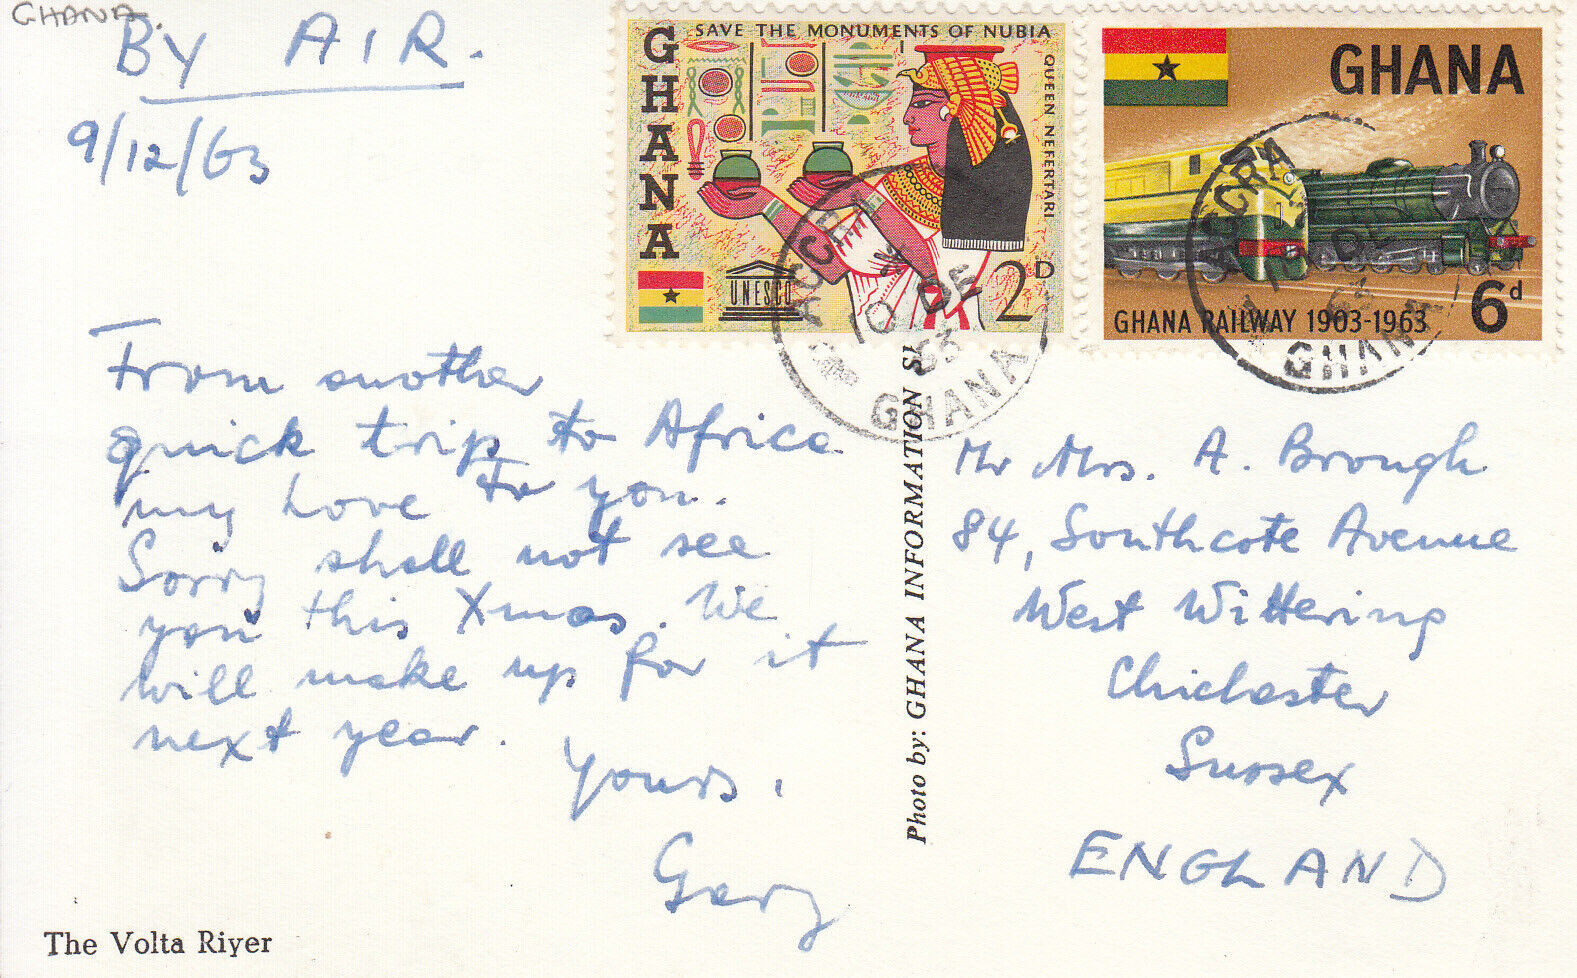 GHANA.
BY AIR.
9/12/63
From another
quick trip to Africa
my Love to you.
Sorry shall not see
you this Xmas. We
will make up for it
next year.
Yours,
Gary
The Volta Riyer
Photo by: GHANA INFORMATION S
GHANA
SAVE THE MONUMENTS OF NUBIA
QUEEN NEFERTARI
UNESCO
2D
ACCRA
10 DE
63
GHANA
GHANA
GHANA RAILWAY 1903-1963
6d
ACCRA
DE
63
GHANA
Mr Mrs. A. Brough
84, Southcote Avenue
West Wittering
Chichester
Sussex
ENGLAND